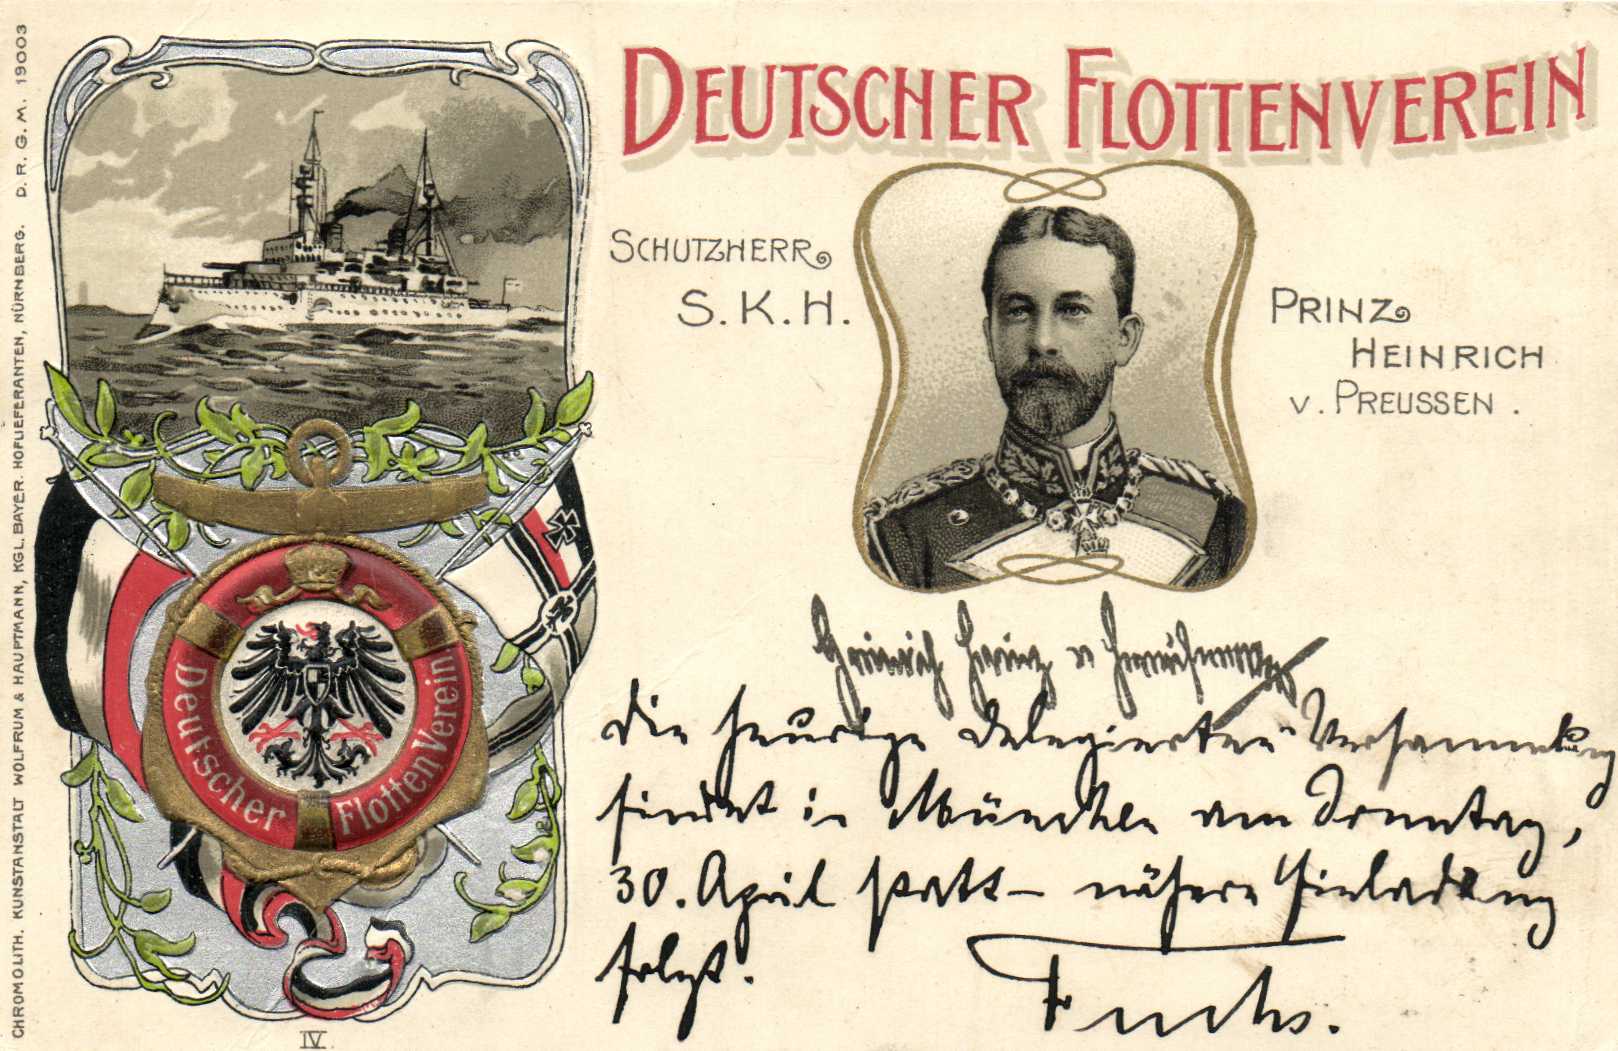 DEUTSCHER FLOTTENVEREIN
SCHUTZHERR
S. K. H.
PRINZ
HEINRICH
v. PREUSSEN.
Heinrich Prinz v Preußen
Die heurige Delegierten Versammlung
findet in München am Sonntag,
30. April statt – nähere Einladung
folgt.
Fuchs.
Deutscher Flotten Verein
IV.
CHROMOLITH. KUNSTANSTALT WOLFRUM & HAUPTMANN, KGL. BAYER. HOFLIEFERANTEN, NÜRNBERG. D. R. G. M. 19003